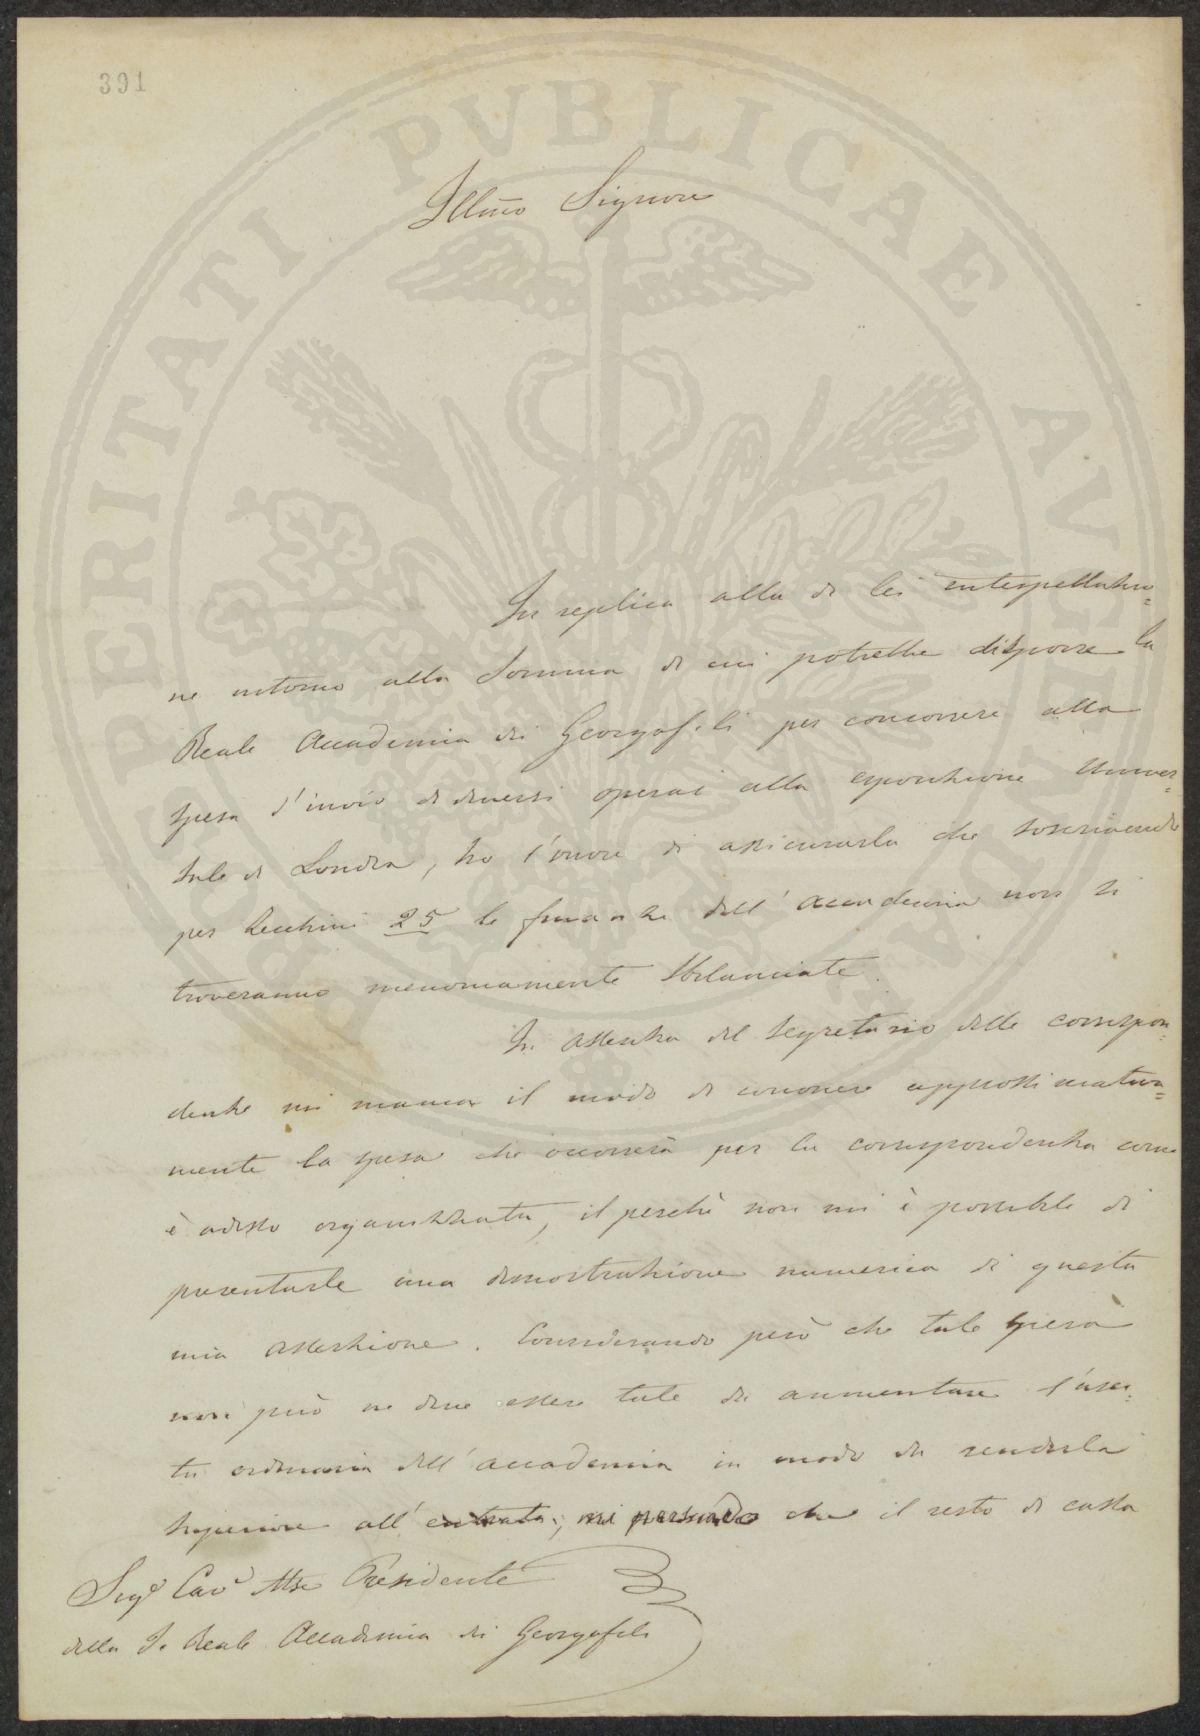 391
Illmo Signore
In replica alla di lei interpellazio=
ne intorno alla Somma di cui potrebbe disporre la
Reale Accademia dei Georgofili per concorrere alla
spesa d'invio di diversi operai alla esposizione Univer=
sale di Londra, ho l'onore di assicurarla che soscrivendo
per Zecchini 25 le finanze dell'accademia non si
troveranno menomamente sbilanciate.
In assenza del Segretario delle corrispon=
denze mi manca il modo di conoscere approssimativa=
mente la spesa che occorrerà per la corrispondenza come
è adesso organizzata, il perchè non mi è possibile di
presentarle una dimostrazione numerica di questa
mia asserzione. Considerando però che tale spesa
non può ne deve essere tale da aumentare l'usci=
ta ordinaria dell'accademia in modo da renderla
superiore all'entrata, mi persuado che il resto di cassa
Sigr Cavr Mse Presidente
della I. Reale Accademia dei Georgofili
PROSPERITATI PVBLICAE AVGENDAE